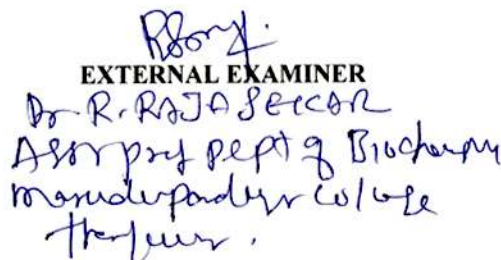 EXTERNAL EXAMINER
Dr. R. RAJASEKAR
Asst prof Dept of Biochemistry
Marudupandiyar College
Thanjavur.